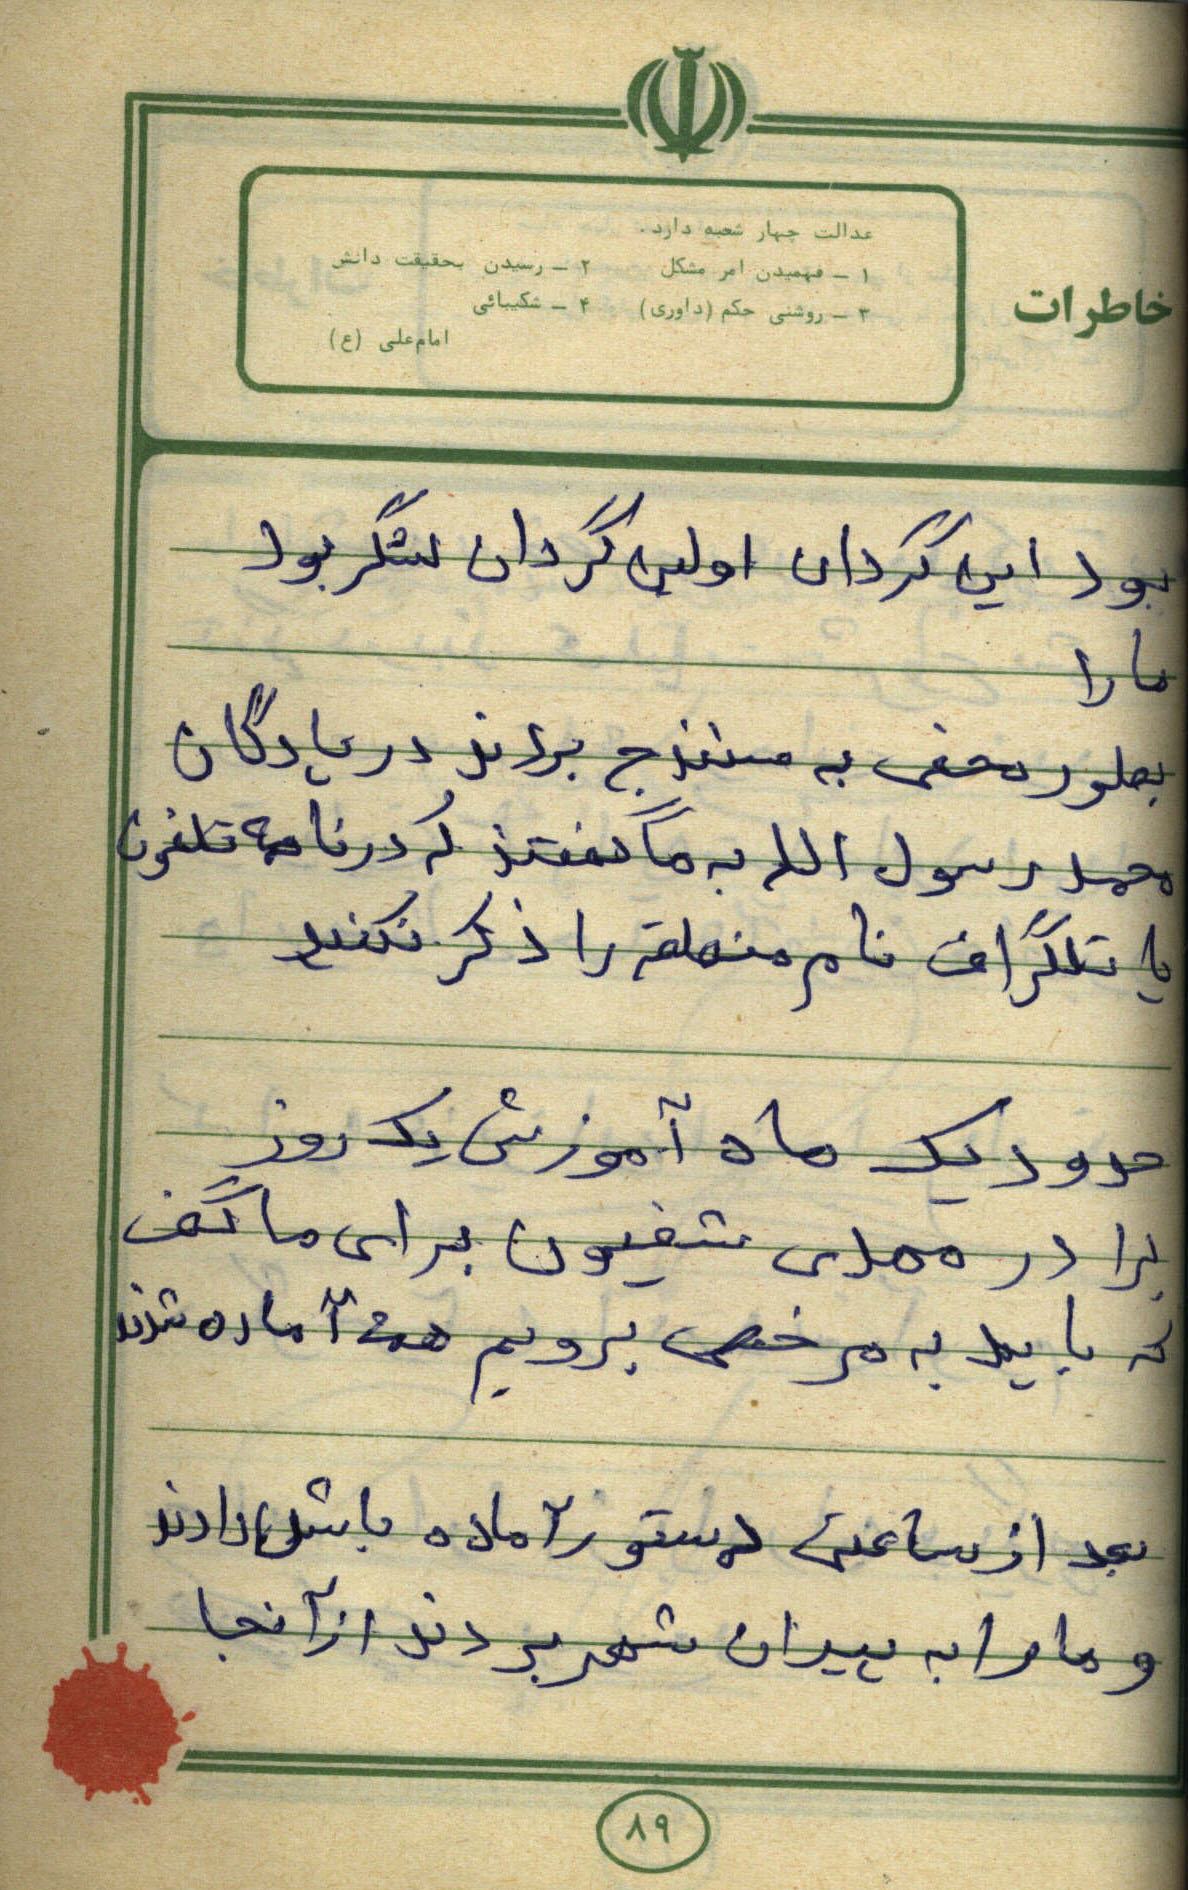 عدالت چهار شعبه دارد.
۱ – فهمیدن امر مشکل ۲ – رسیدن بحقیقت دانش
۳ – روشنی حکم (داوری) ۴ – شکیبائی
امام‌علی (ع)
خاطرات
بود این گردان اولین گردان لشگر بود
ما را
بطور مخفی به سنندج بردند در پادگان
محمد رسول الله به ما گفتند که در نامه تلفون
یا تلگراف نام منطقه را ذکر نکنید
حدود یک ماه آموزش یک روز
برادر مهدی شفیون برای ما گفت
که باید به مرخصی برویم همه آماده شدند
بعد از ساعتی دستور آماده باش دادند
و ما را به پیران شهر بردند از آنجا
۸۹